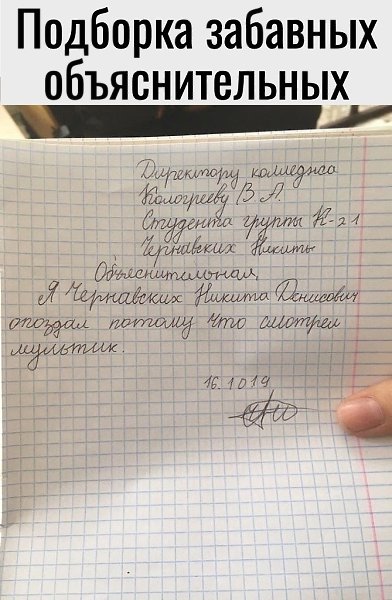 Подборка забавных
объяснительных
Директору колледжа
Кологрееву В. А.
Студента группы К-21
Чернавских Никиты
Объяснительная,
Я Чернавских Никита Денисович
опоздал потому что смотрел
мультик.
16.10 19